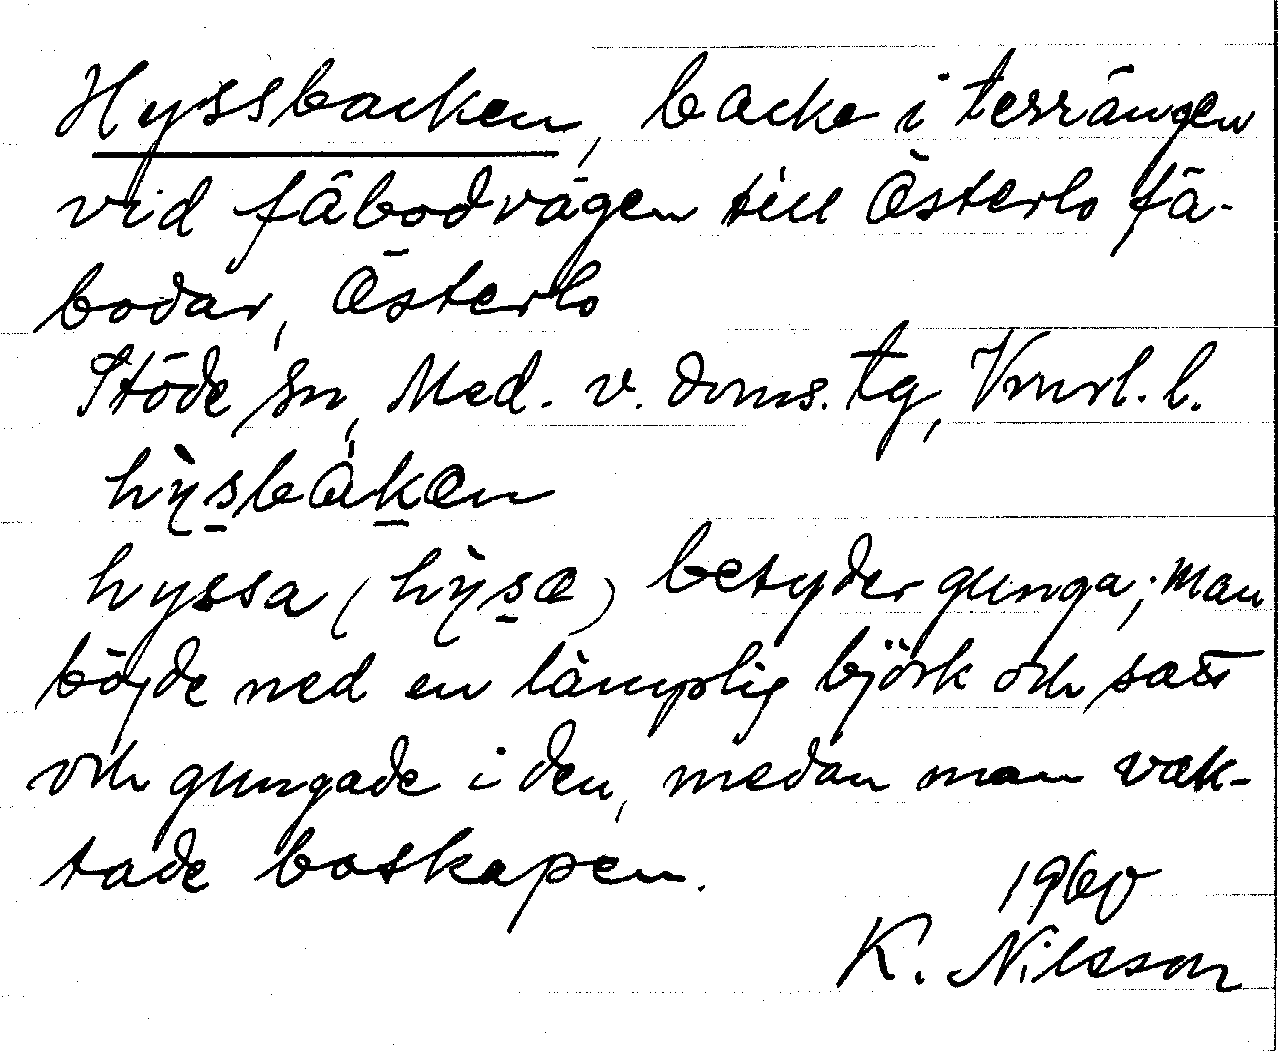 Hyssbacken, backe i terrängen
vid fäbodvägen till Österlo fä-
bodar, Österlo
Stöde sn, Med. v. doms. tg, Vnrl. l.
hỳsbakən
hyssa (hỳsa) betyder gunga; man
böjde ned en lämplig björk och satt
och gungade i den, medan man vak-
tade boskapen.
1960
K. Nilsson